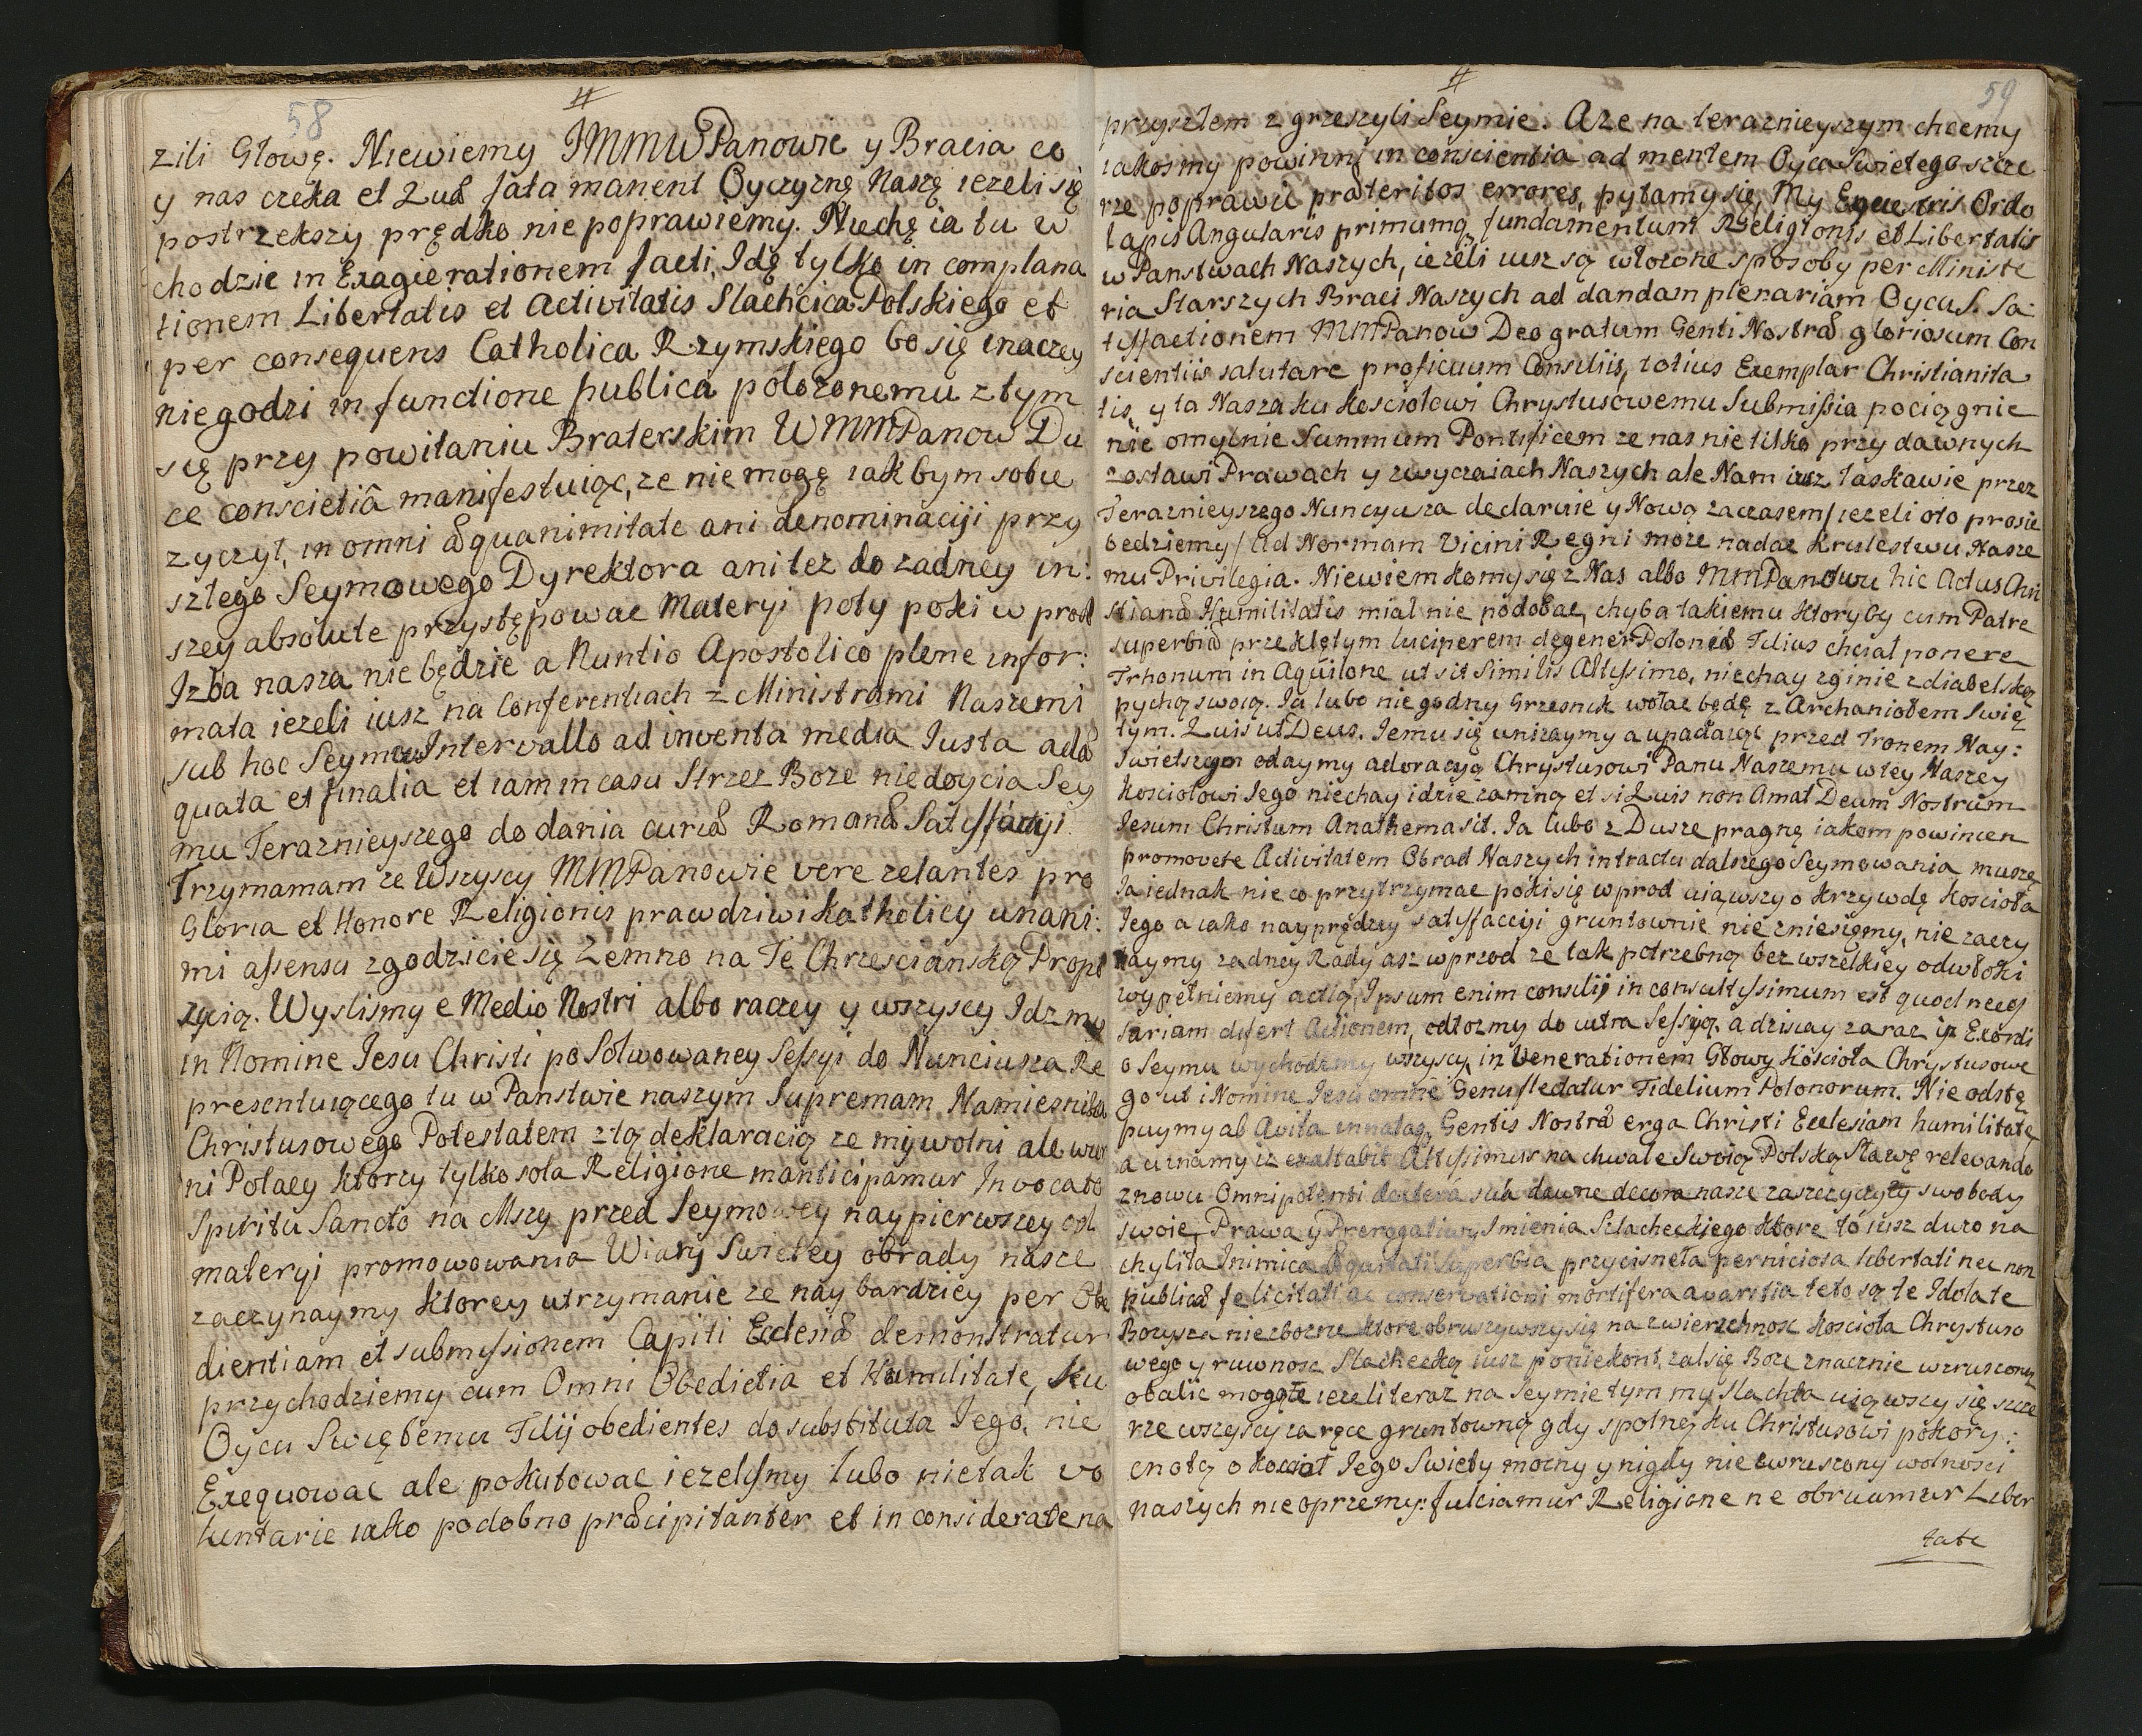 58
#
zili Głowę. Niewiemy JMMWPanowie y Bracia co
y nas czeka et Quæ fata manent Oyczyznę Naszę iezeli się
postrzekszy prędko nie poprawiemy. Niechę ia tu w
chodzic in Exagierationem facti, Idę tylko in complana
tionem Libertatis et Activitatis Slachcica Polskiego et
per consequens Catholica Rzymskiego bo się inaczey
niegodzi in functione publica położonemu z tym
się przy powitaniu Braterskim WMMPanow Du
ce conscietiâ manifestuiąc, ze nie mogę iak bym sobie
zyczył, in omni æquanimitate ani denominacÿi przy
szłego Seymowego Dyrektora ani tez do zadney in:
szey absolute przystępowac Materyi poty poki w prod
Izba nasza nie będzie a Nuntio Apostolico plene infor:
mata iezeli iusz na Conferentiach z Ministrami Naszemi
sub hoc Seymu Intervallo ad inventa media Iusta adæ
quata et finalia et iam in casu Strzez Boze niedoycia Sey
mu Teraznieyszego do dania curiæ Romanæ Satysfactyi.
Trzymamam ze Wszyscy MMPanowie vere zelantes pro
Gloria et Honore Religionis prawdziwi katholicy unani:
mi assensu zgodzicie się zemno na Tę Chrzescianską Propo
zycią. Wyslismy e Medio Nostri albo raczey y wszyscy Idzmy
in Nomine Iesu Christi po Solwowaney Sessyi do Nunciusza Re
presentuiącego tu w Panstwie naszym Supremam Namiesnika
Christusowego Potestatem z tą deklaracią ze my wolni ale wier
ni Polacy ktorzy tylko sola Religione manticipamur Invocato
Spiritu Sancto na Mszy przed Seymowey naypierwszey od
materyi promowowania Wiary Swietey obrady nasze
zaczynaymy ktorey utrzymanie ze nay bardziey per Obe
dientiam et submissionem Capiti Ecclesiæ demonstratur
przychodziemy cum Omni Obedietia et Humilitate, seu
Oycu Swiętemu Filij obedientes do substituta Iego, nie
Exequowac ale pokutowac iezelismy lubo nietak vo
luntarie iako podobno præcipitanter et inconsiderate na
59
#
przyszłem zgrzeszyli Seymie. Aze na teraznieyszym chcemy
iakosmy powinni in conscientia ad mentem Oyca Swietego szcze
rze poprawic præteritos errores, pytamy się, My Equestris Ordo
lapis Angularis primumq fundamentum Religionis et Libertatis
w Panstwach Naszych, iezeli iusz są włozone sposoby per Ministe
ria Starszych Braci Naszych ad dandam plenariam Oycu S. Sa:
tisfactionem MMPanow Deo gratum Genti Nostræ gloriosum Con
scientiis salutare proficuum Consiliis, totius Exemplar Christianita
tis, y ta Nasza ku kosciołowi Chrystusowemu Submissia pociągnie
nie omylnie Summum Pontificem ze nas nie tilko przy dawnych
zostawi Prawach y zwyczaiach Naszych ale Nam iusz łaskawie przez
Teraznieyszego Nuncyusza declaruie y Nową zaczasem / iezeli oto prosic
bedziemy / ad Normam Vicini Regni moze nadac Krolestwu Nasze
mu Privilegia. Niewiem komy się z Nas albo MMPanowie hic Actus Chri
stianæ Humilitatis miał nie podobac, chyba takiemu ktoryby cum Patre
superbiæ przeklętym luciperem degener Poloniæ Filius chciał ponere
Trhonum in Aquilone ut sit Similis Altissimo, niechay zginie z diabelską
pychą swoią. Ia lubo niegodny Grzesnik wołac będę z Archaniołem Swię
tym. Quis ut Deus. Iemu się unizaymy a upadaiąc przed Tronem Nay:
Swietszym odaymy adoracyą Chrystusowi Panu Naszemu w tey Naszey
kosciołowi Iego niechay idzie zanina et si Quis non Amat Deum Nostrum
Iesum Christum Anathema sit. Ia lubo z Dusze pragnę iakom powinien
promovete Activitatem Obrad Naszych in tractu dalszego Seymowania muszę
Ia iednak nieco przytrzymac poki się w prod uiąwszy o krzywdę koscioła
Iego a iako nayprędzey satysfaccyi gruntownie nie zniesiemy, nie zaczy
naymy zadney Rady asz w przod ze tak potrzebną bez wszelkiey odwłoki
wypełniemy actią, Ipsum enim consilij inconsultissimum est quod neces
sariam difert Actionem, odłozmy do iutra Sessyą. a dzisiay zaraz in Exordi
o Seymu wychodzmy wszyscy in Venerationem Głowy koscioła Chrystusowe
go ut i Nomine Iesu omne Genu flectatur Fidelium Polonorum. Nie odstę
puymy ab Avita innataq Gentis Nostræ erga Christi Ecclesiam humilitate
a uznamy ze exaltabit Altissimus na chwałe Swoią Polską Sławę relevando
znowu Omnipotenti dextera sua dawne decora nasze zaszczyczyty swobody
swoie, Prawa y Prerogatiwy Imienia Szlacheckiego ktore to iusz duzo na
chyliła Inimica Æqualitati Superbia przycisneła perniciosa libertati nec non
publicæ felicitati ac conservationi mortifera avaritia te to są te Idola te
Bozysza niezbozne ktore obruszywszy się na zwierzchnosc koscioła Chrystuso
wego y ruwnosc Slachecką iusz poniekont, zal się Boze znacznie wzruszoną
obalic mogąte iezeli teraz na Seymie tym my Slachta uiąwszy się szcze
rze wszyscy za ręce gruntowną gdy spolney ku Christusowi pokory:
cnotą o kościoł Iego Swiety mocny y nigdy nie wruszony wolnosci
naszych nie oprzemy: fulciamur Religione ne obruamur Liber
tate